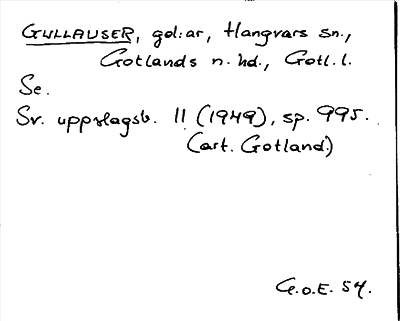 GULLAUSER, gol:ar, Hangvars sn.,
Gotlands n. hd., Gotl. l.
Se.
Sv. uppslagsb. 11 (1949), sp. 995.
(art. Gotland.)
G.o.E. 54.